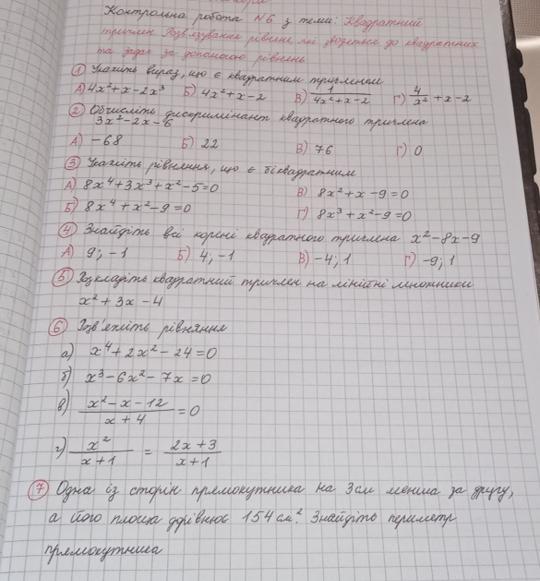 Контрольна робота №6 з теми: Квадратний
тричлен. Розв'язування рівнянь, які зводяться до квадратних
та задач за допомогою рівнянь
1 Укажіть вираз, що є квадратним тричленом
А) 4x²+x-2x³ Б) 4x²+x-2 В) 1/(4x²+x-2) Г) 4/x²+x-2
2 Обчисліть дискримінант квадратного тричлена
3x²-2x-6
А) -68 Б) 22 В) 76 Г) 0
3 Укажіть рівняння, що є біквадратним
А) 8x⁴+3x³+x²-5=0 В) 8x²+x-9=0
Б) 8x⁴+x²-9=0 Г) 8x³+x²-9=0
4 Знайдіть всі корені квадратного тричлена x²-8x-9
А) 9; -1 Б) 4; -1 В) -4; 1 Г) -9; 1
5 Розкладіть квадратний тричлен на лінійні множники
x²+3x-4
6 Розв'яжіть рівняння
а) x⁴+2x²-24=0
б) x³-6x²-7x=0
в) (x²-x-12)/(x+4)=0
г) x²/(x+1) = (2x+3)/(x+1)
7 Одна із сторін прямокутника на 3см менша за другу,
а його площа дорівнює 154см². Знайдіть периметр
прямокутника